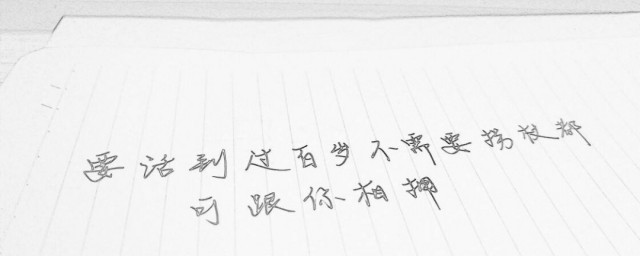 要活到过百岁不需要拐杖都
可跟你相拥